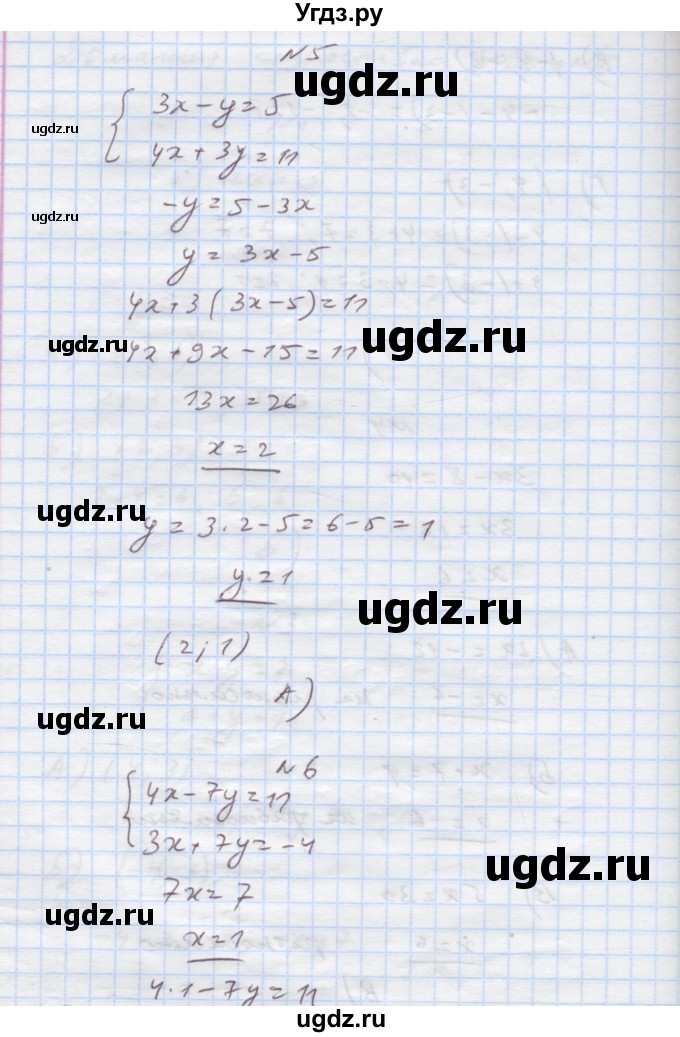 Угдз.ру
№5
ugdz.ru
3x - y = 5
ugdz.ru
4x + 3y = 11
-y = 5 - 3x
ugdz.ru
y = 3x - 5
4x + 3(3x - 5) = 11
ugdz.ru
ugdz.ru
4x + 9x - 15 = 11
13x = 26
x = 2
ugdz.ru
y = 3 · 2 - 5 = 6 - 5 = 1
y = 1
ugdz.ru
(2; 1)
А)
ugdz.ru
№6
4x - 7y = 11
3x + 7y = -4
ugdz.ru
7x = 7
ugdz.ru
x = 1
4 · 1 - 7y = 11
ugdz.ru